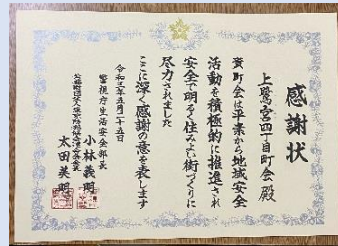 感謝状
上鷺宮四丁目町会殿
貴町会は平素から地域安全
活動を積極的に推進され
安全で明るく住みよい街づくりに
尽力されました
ここに深く感謝の意を表します
令和三年五月二十五日
警視庁生活安全部長
小林義明
太田美明